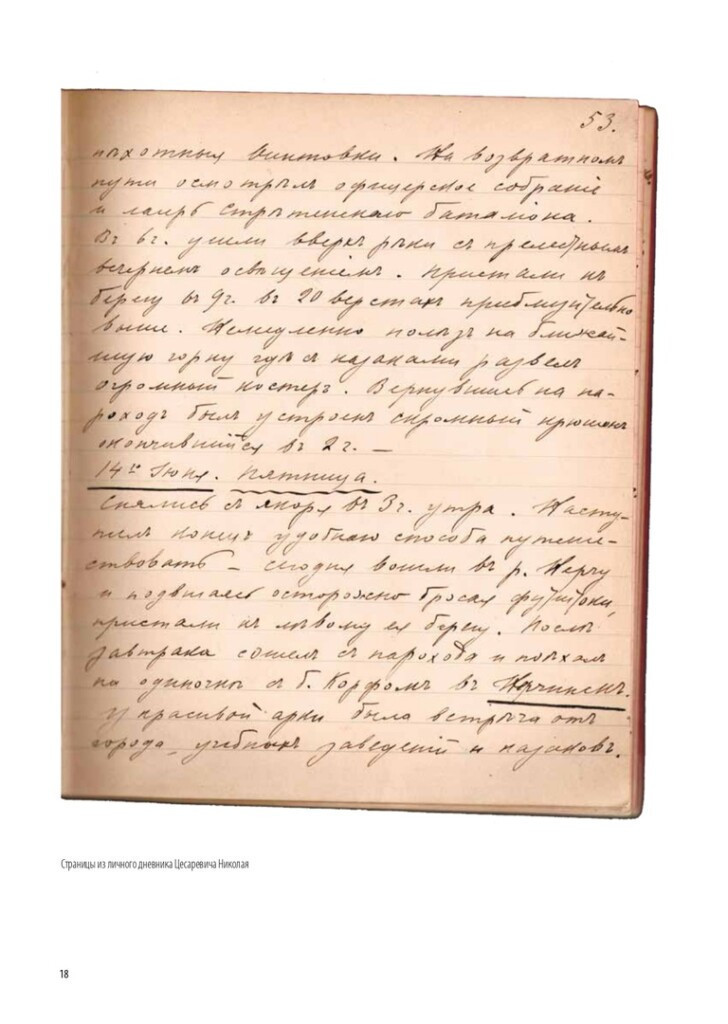 53.
пѣхотныя винтовки. На возвратномъ
пути осмотрѣлъ офицерское собраніе
и лагерь Стрѣтенскаго баталіона.
Въ 6 г. ушли вверхъ рѣки съ прелестнымъ
вечернемъ освѣщеніемъ. Пристали къ
берегу въ 9 г. въ 20 верстахъ приблизительно
выше. Немедленно полѣзъ на ближай-
шую горку гдѣ съ казаками развелъ
огромный костеръ. Вернувшись на па-
роходъ былъ устроенъ скромный крюшонъ
окончившийся въ 2 г. —
14го Іюня. Пятница.
Снялись съ якоря въ 3 г. утра. Насту-
пилъ конецъ удобнаго способа путеше-
ствовать — сегодня вошли въ р. Нерчу
и подвигаясь осторожно бросая футштоки,
пристали къ лѣвому ея берегу. Послѣ
завтрака сошелъ съ парохода и поѣхалъ
на одиночкѣ съ б. Корфомъ въ Нерчинскъ.
У красивой арки была встрѣча отъ
города, учебныхъ заведеній и казаковъ.
Страницы из личного дневника Цесаревича Николая
18